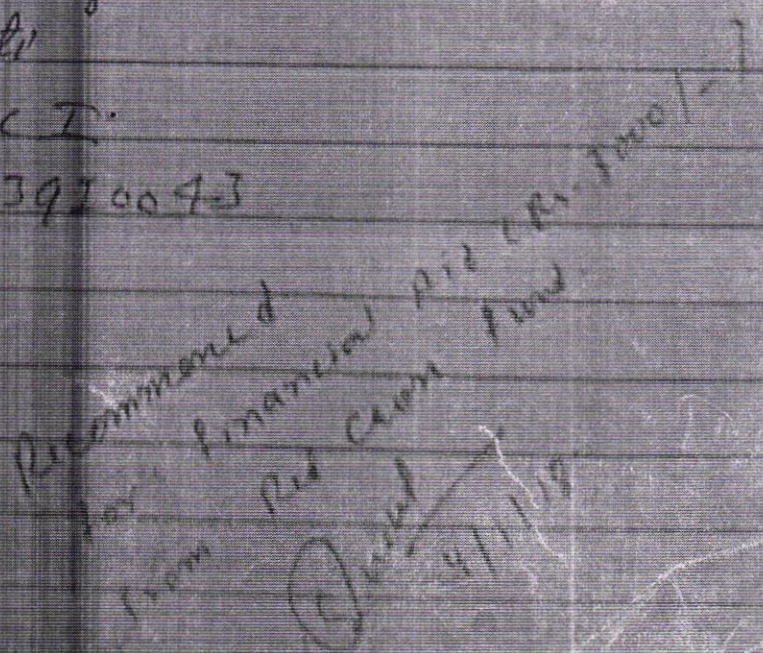 CI.
3920043
Recommened
for financial Aid (Rs. 1000/-)
from Red Cross fund.
4/1/18